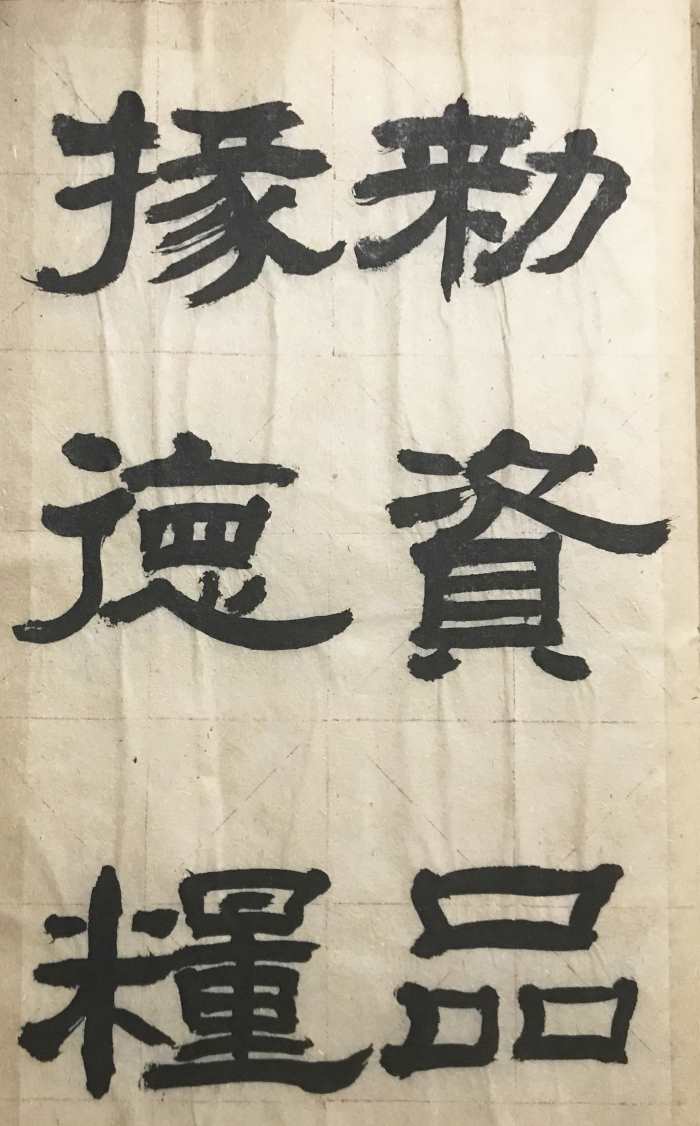 勑資品
掾德糧